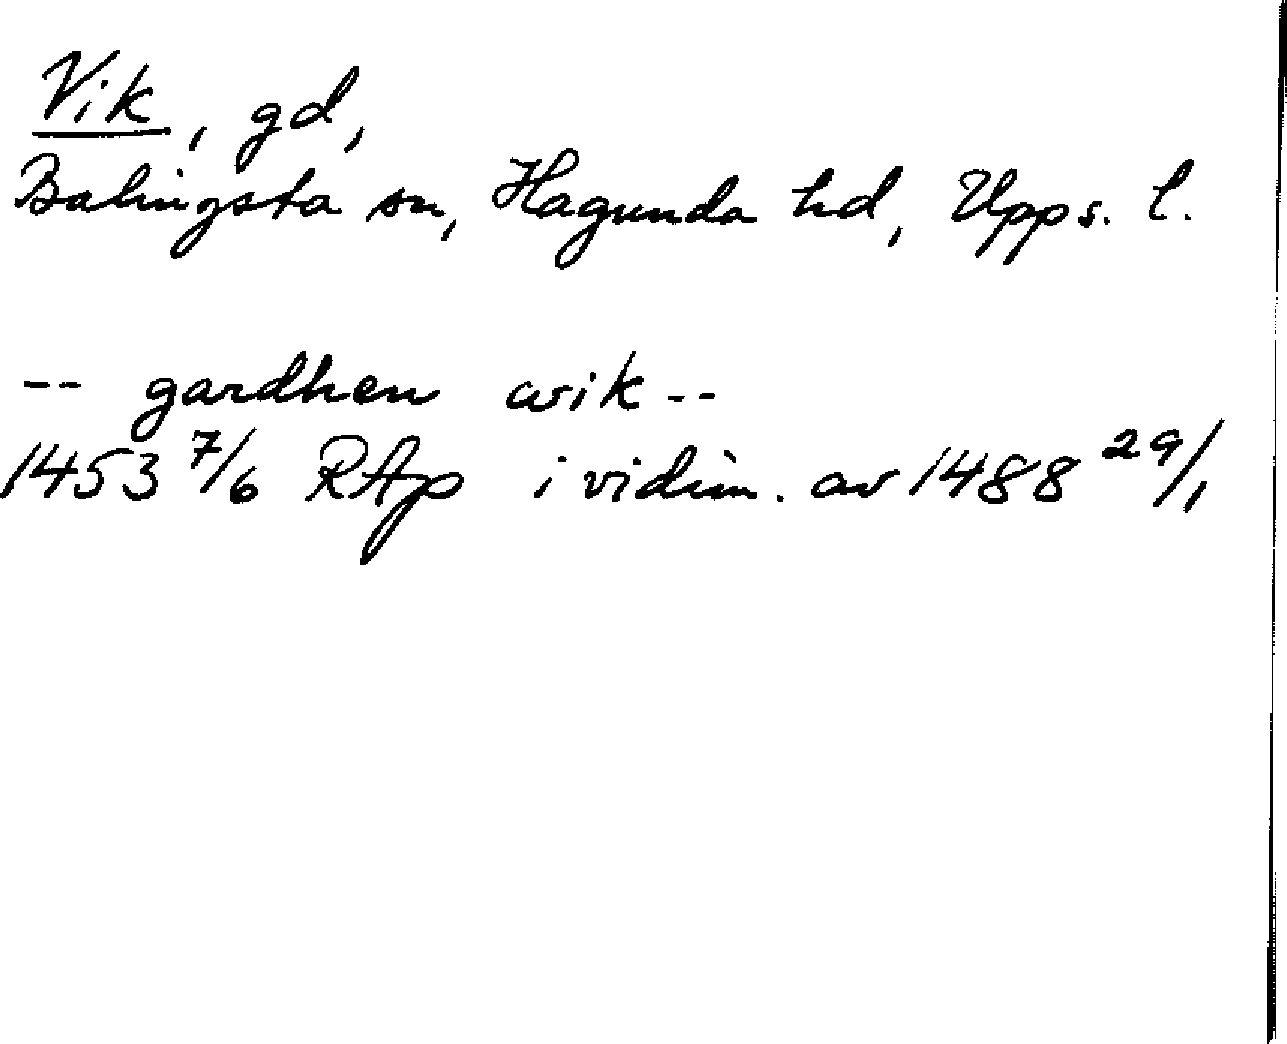 Vik, gd,
Balingsta sn, Hagunda hd, Upps. l.
-- gardhen wik --
1453 7/6 RAp i vidim. av 1488 29/1